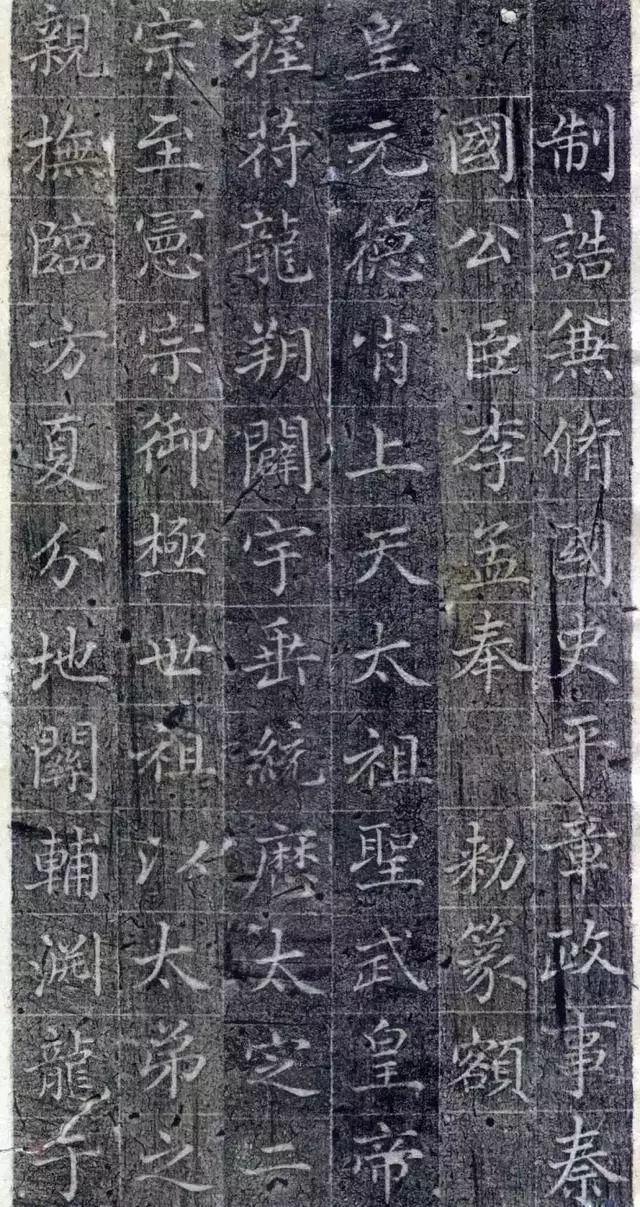 制誥兼脩國史平章政事秦
國公臣李孟奉勑篆額
皇元德肖上天太祖聖武皇帝
握符龍朔闢宇垂統歷太定二
宗至憲宗御極世祖以太弟之
親撫臨方夏分地關輔淵龍于